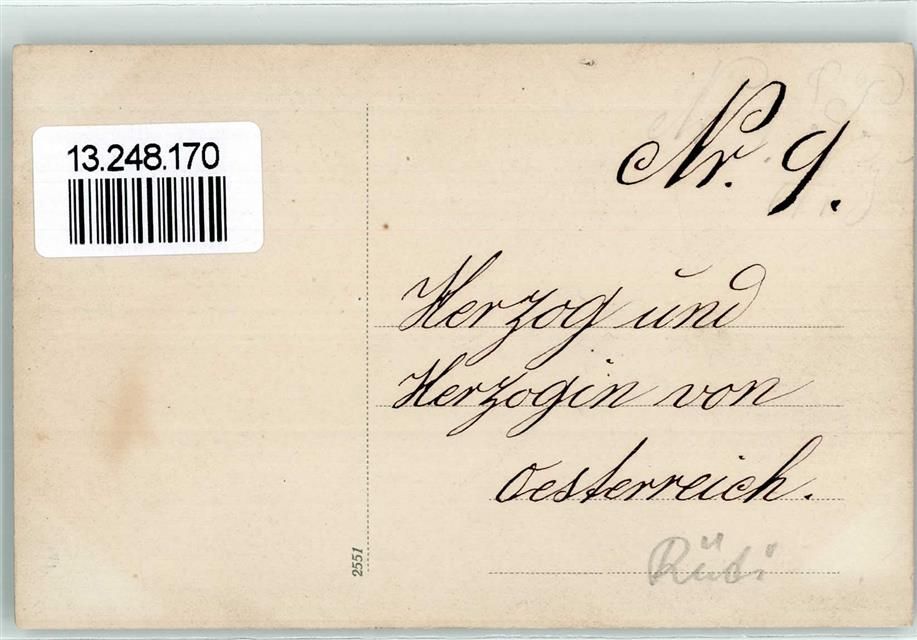 13.248.170
Nr. 9.
Herzog und
Herzogin von
Oesterreich.
Rüti
2551